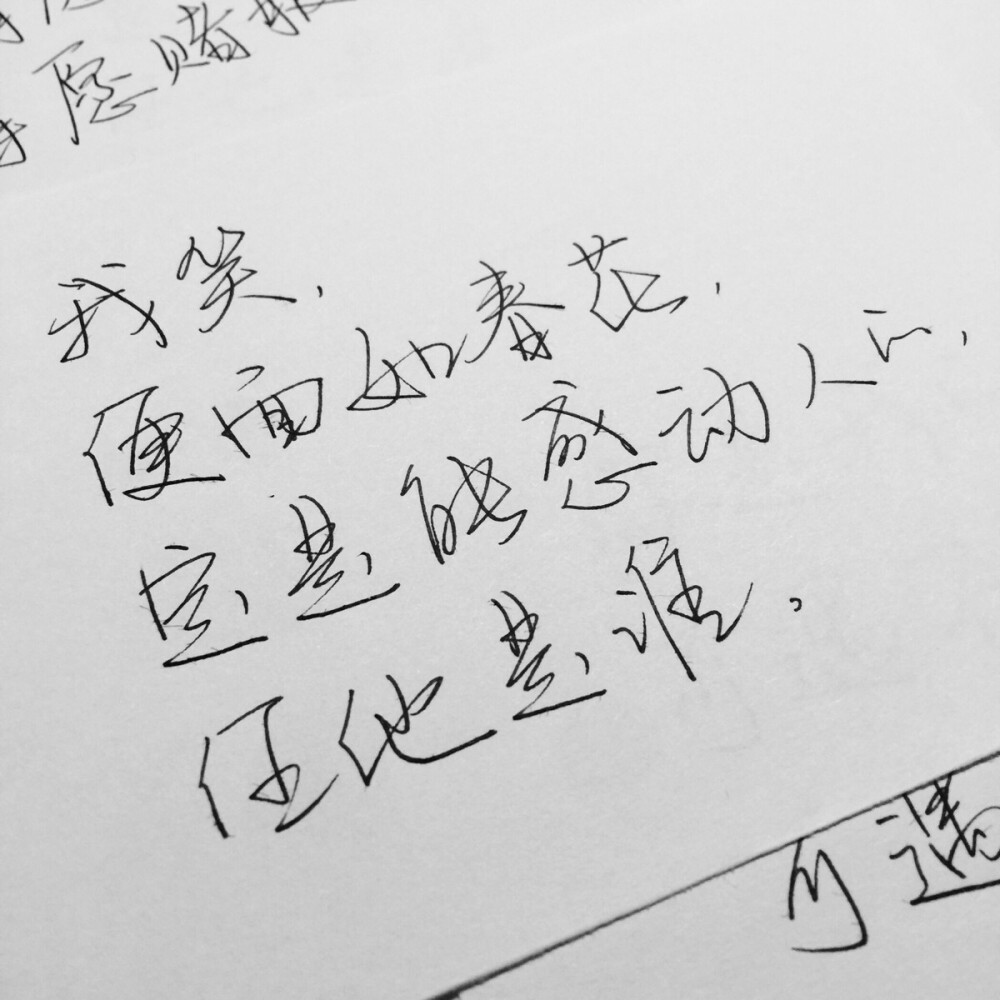 愿赌
我笑,
便面如春花,
定是能感动人的,
任他是谁。